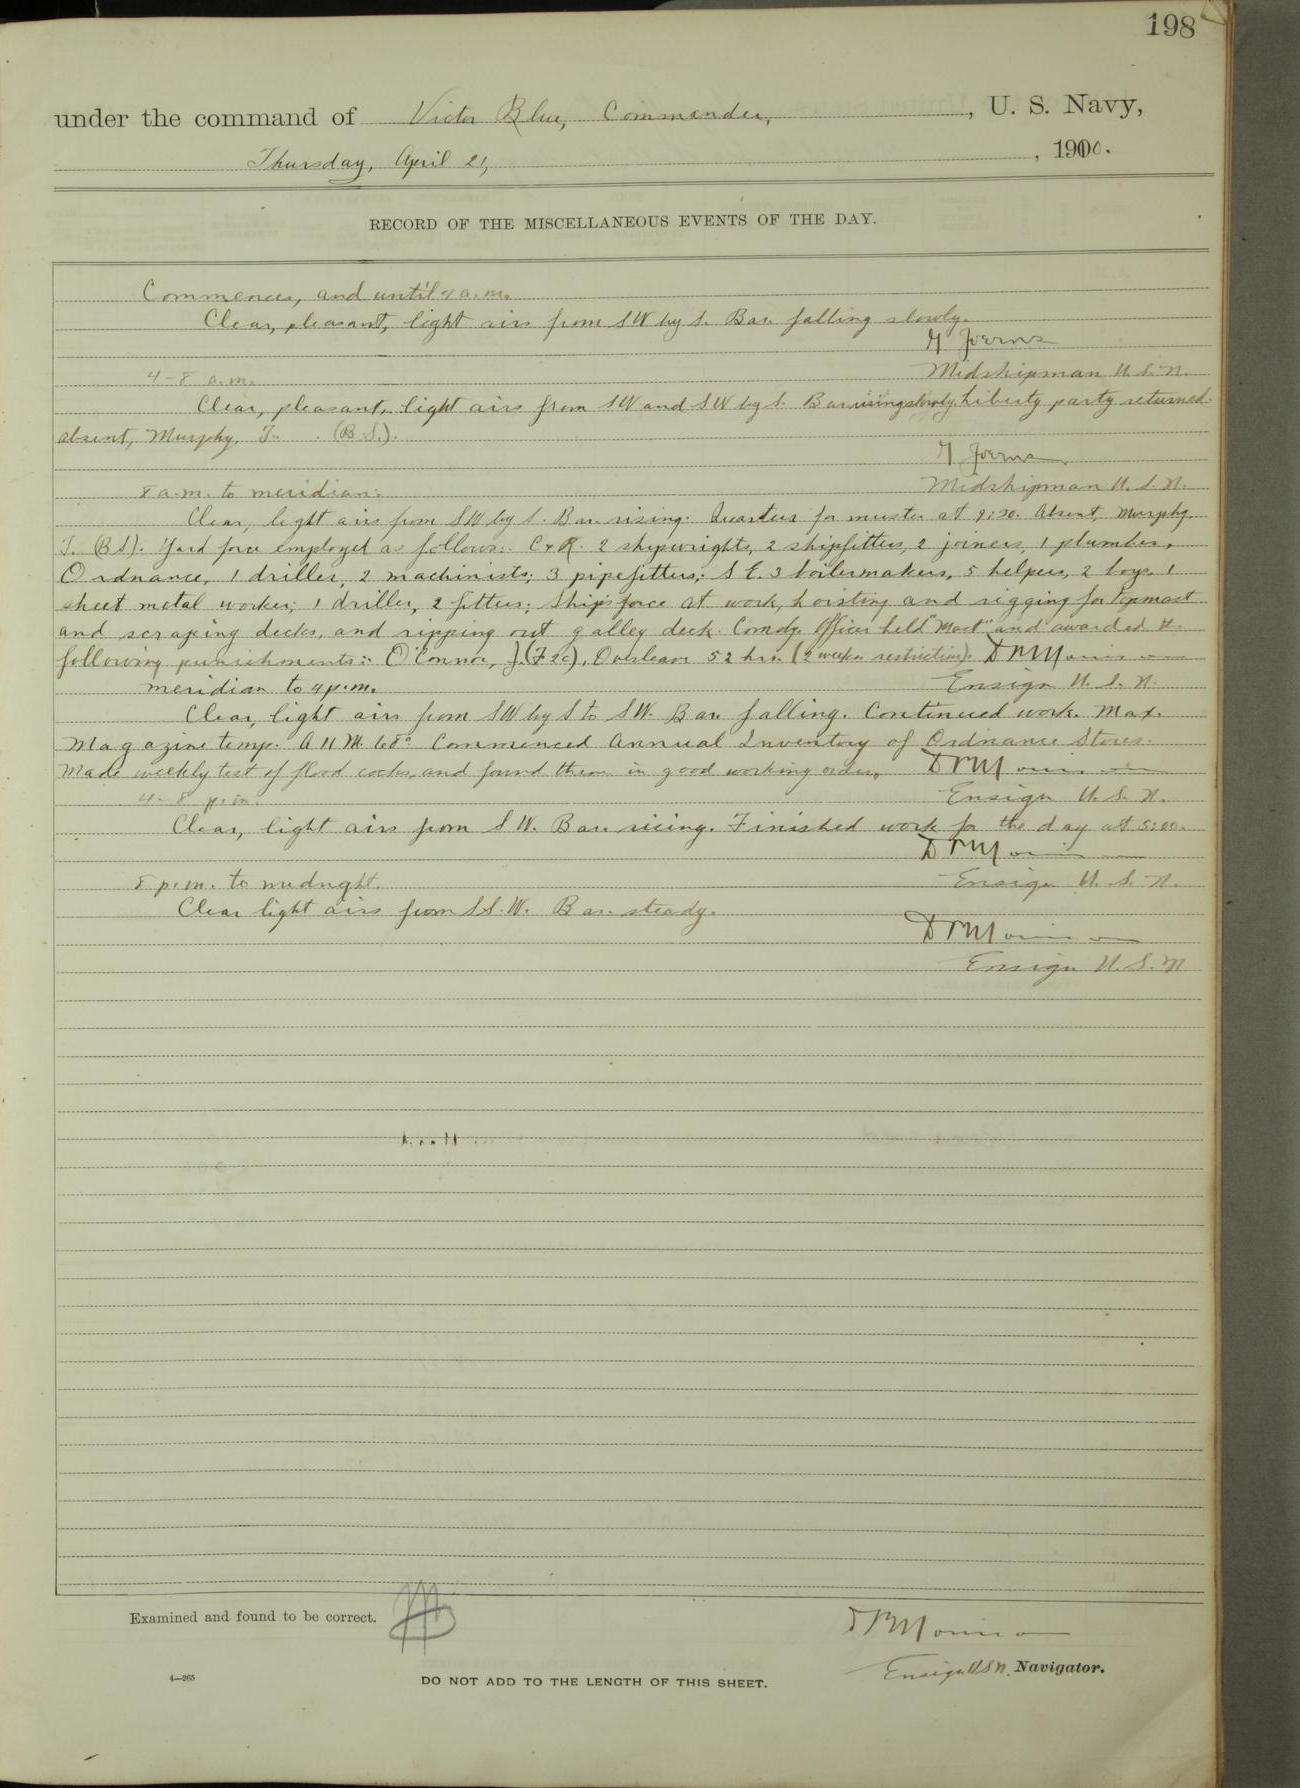 198
under the command of Victor Blue, Commander, , U. S. Navy,
Thursday, April 21, , 1910.
RECORD OF THE MISCELLANEOUS EVENTS OF THE DAY.
Commences, and until 4 a.m.
Clear, pleasant, light airs from SW by S. Bar. falling slowly.
G Joerns
4-8 a.m. Midshipman U.S.N.
Clear, pleasant, light airs from SW and SW by S. Bar rising slowly. Liberty party returned
absent, Murphy, T. (B.S.).
G Joerns
8 a.m. to meridian: Midshipman U.S.N.
Clear, light airs from SW by S. Bar. rising. Quarters for muster at 9:20. Absent, Murphy
T. (BS). Yard force employed as follows: C & R. 2 shipwrights, 2 shipfitters, 2 joiners, 1 plumber,
Ordnance, 1 driller, 2 machinists; 3 pipefitters; S E. 3 boilermakers, 5 helpers, 2 boys, 1
sheet metal worker; 1 driller, 2 fitters; Ship's force at work, hoisting and rigging for topmast
and scraping decks, and ripping out galley deck. Comdg. Officer held "Mast" and awarded the
following punishments:: O'Connor, J. (F2c), Overleave 52 hrs. (2 weeks restriction). D M
meridian to 4 p.m. Ensign U.S.N.
Clear, light airs from SW by S to SW. Bar falling. Continued work. Max.
Magazine temp. A 11 M. 68° Commenced Annual Inventory of Ordnance Stores.
Made weekly test of flood cocks, and found them in good working order.
4-8 p.m. Ensign U.S.N.
Clear, light airs from SW. Bar. rising. Finished work for the day at 5:00.
8 p.m. to midnght. Ensign U.S.N.
Clear light airs from SS.W. Bar. steady.
Ensign U.S.N
Examined and found to be correct.
Ensign USN. Navigator.
4—265
DO NOT ADD TO THE LENGTH OF THIS SHEET.